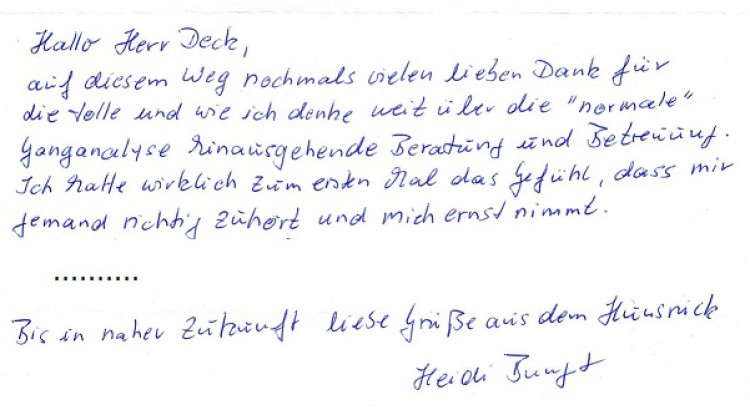 Hallo Herr Deck,
auf diesem Weg nochmals vielen lieben Dank für
die tolle und wie ich denke weit über die "normale"
Ganganalyse hinausgehende Beratung und Betreuung.
Ich hatte wirklich zum ersten Mal das Gefühl, dass mir
jemand richtig zuhört und mich ernst nimmt.
..........
Bis in naher Zukunft liebe Grüße aus dem Hunsrück
Heidi